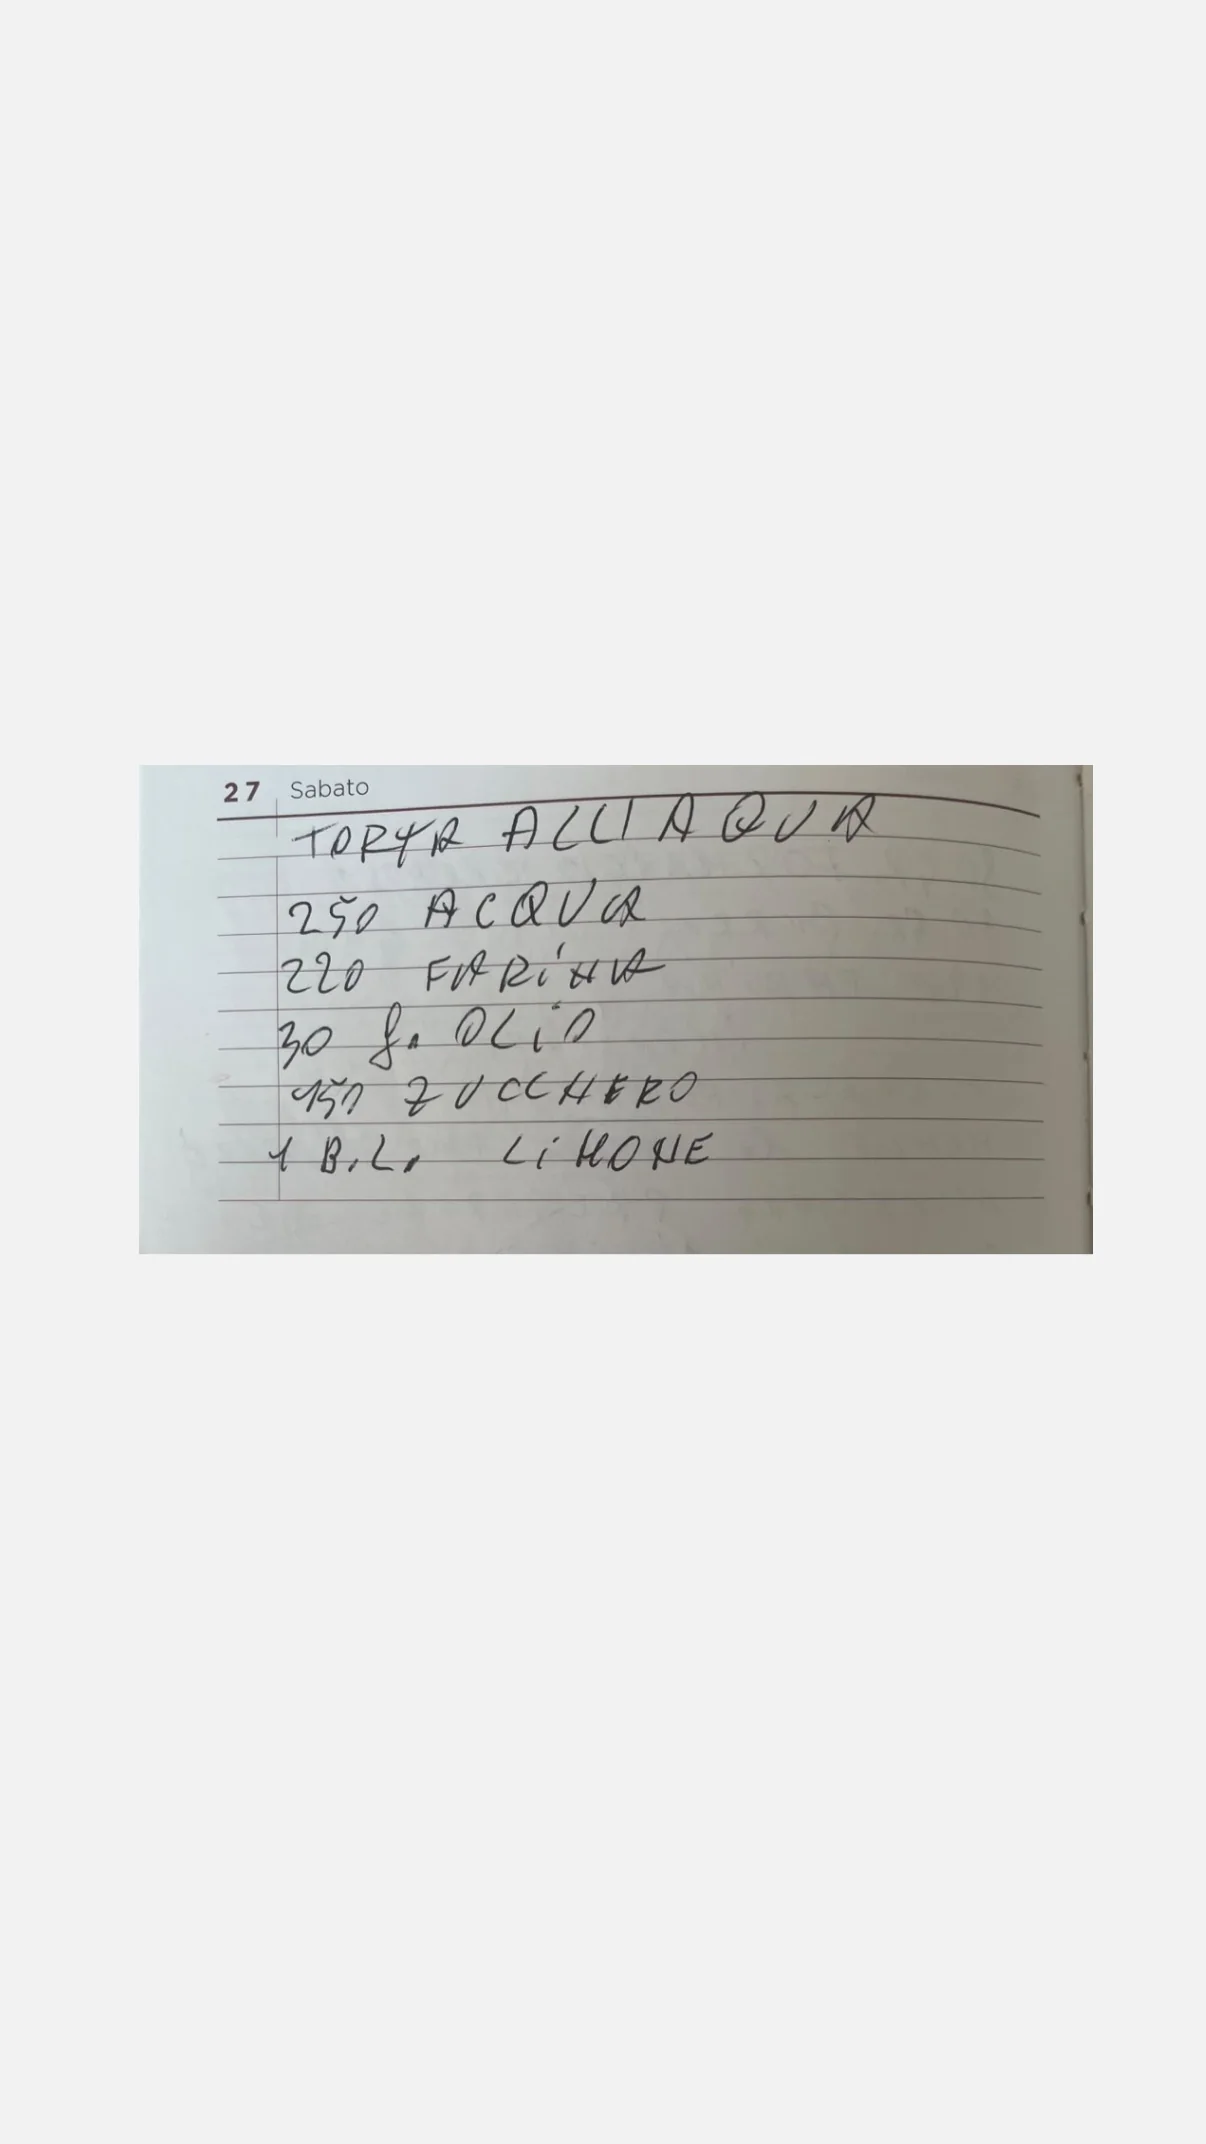 27 Sabato
TORTA ALL'AQUA
250 ACQUA
220 FARINA
30 g. OLIO
150 ZUCCHERO
1 B.L. LIMONE